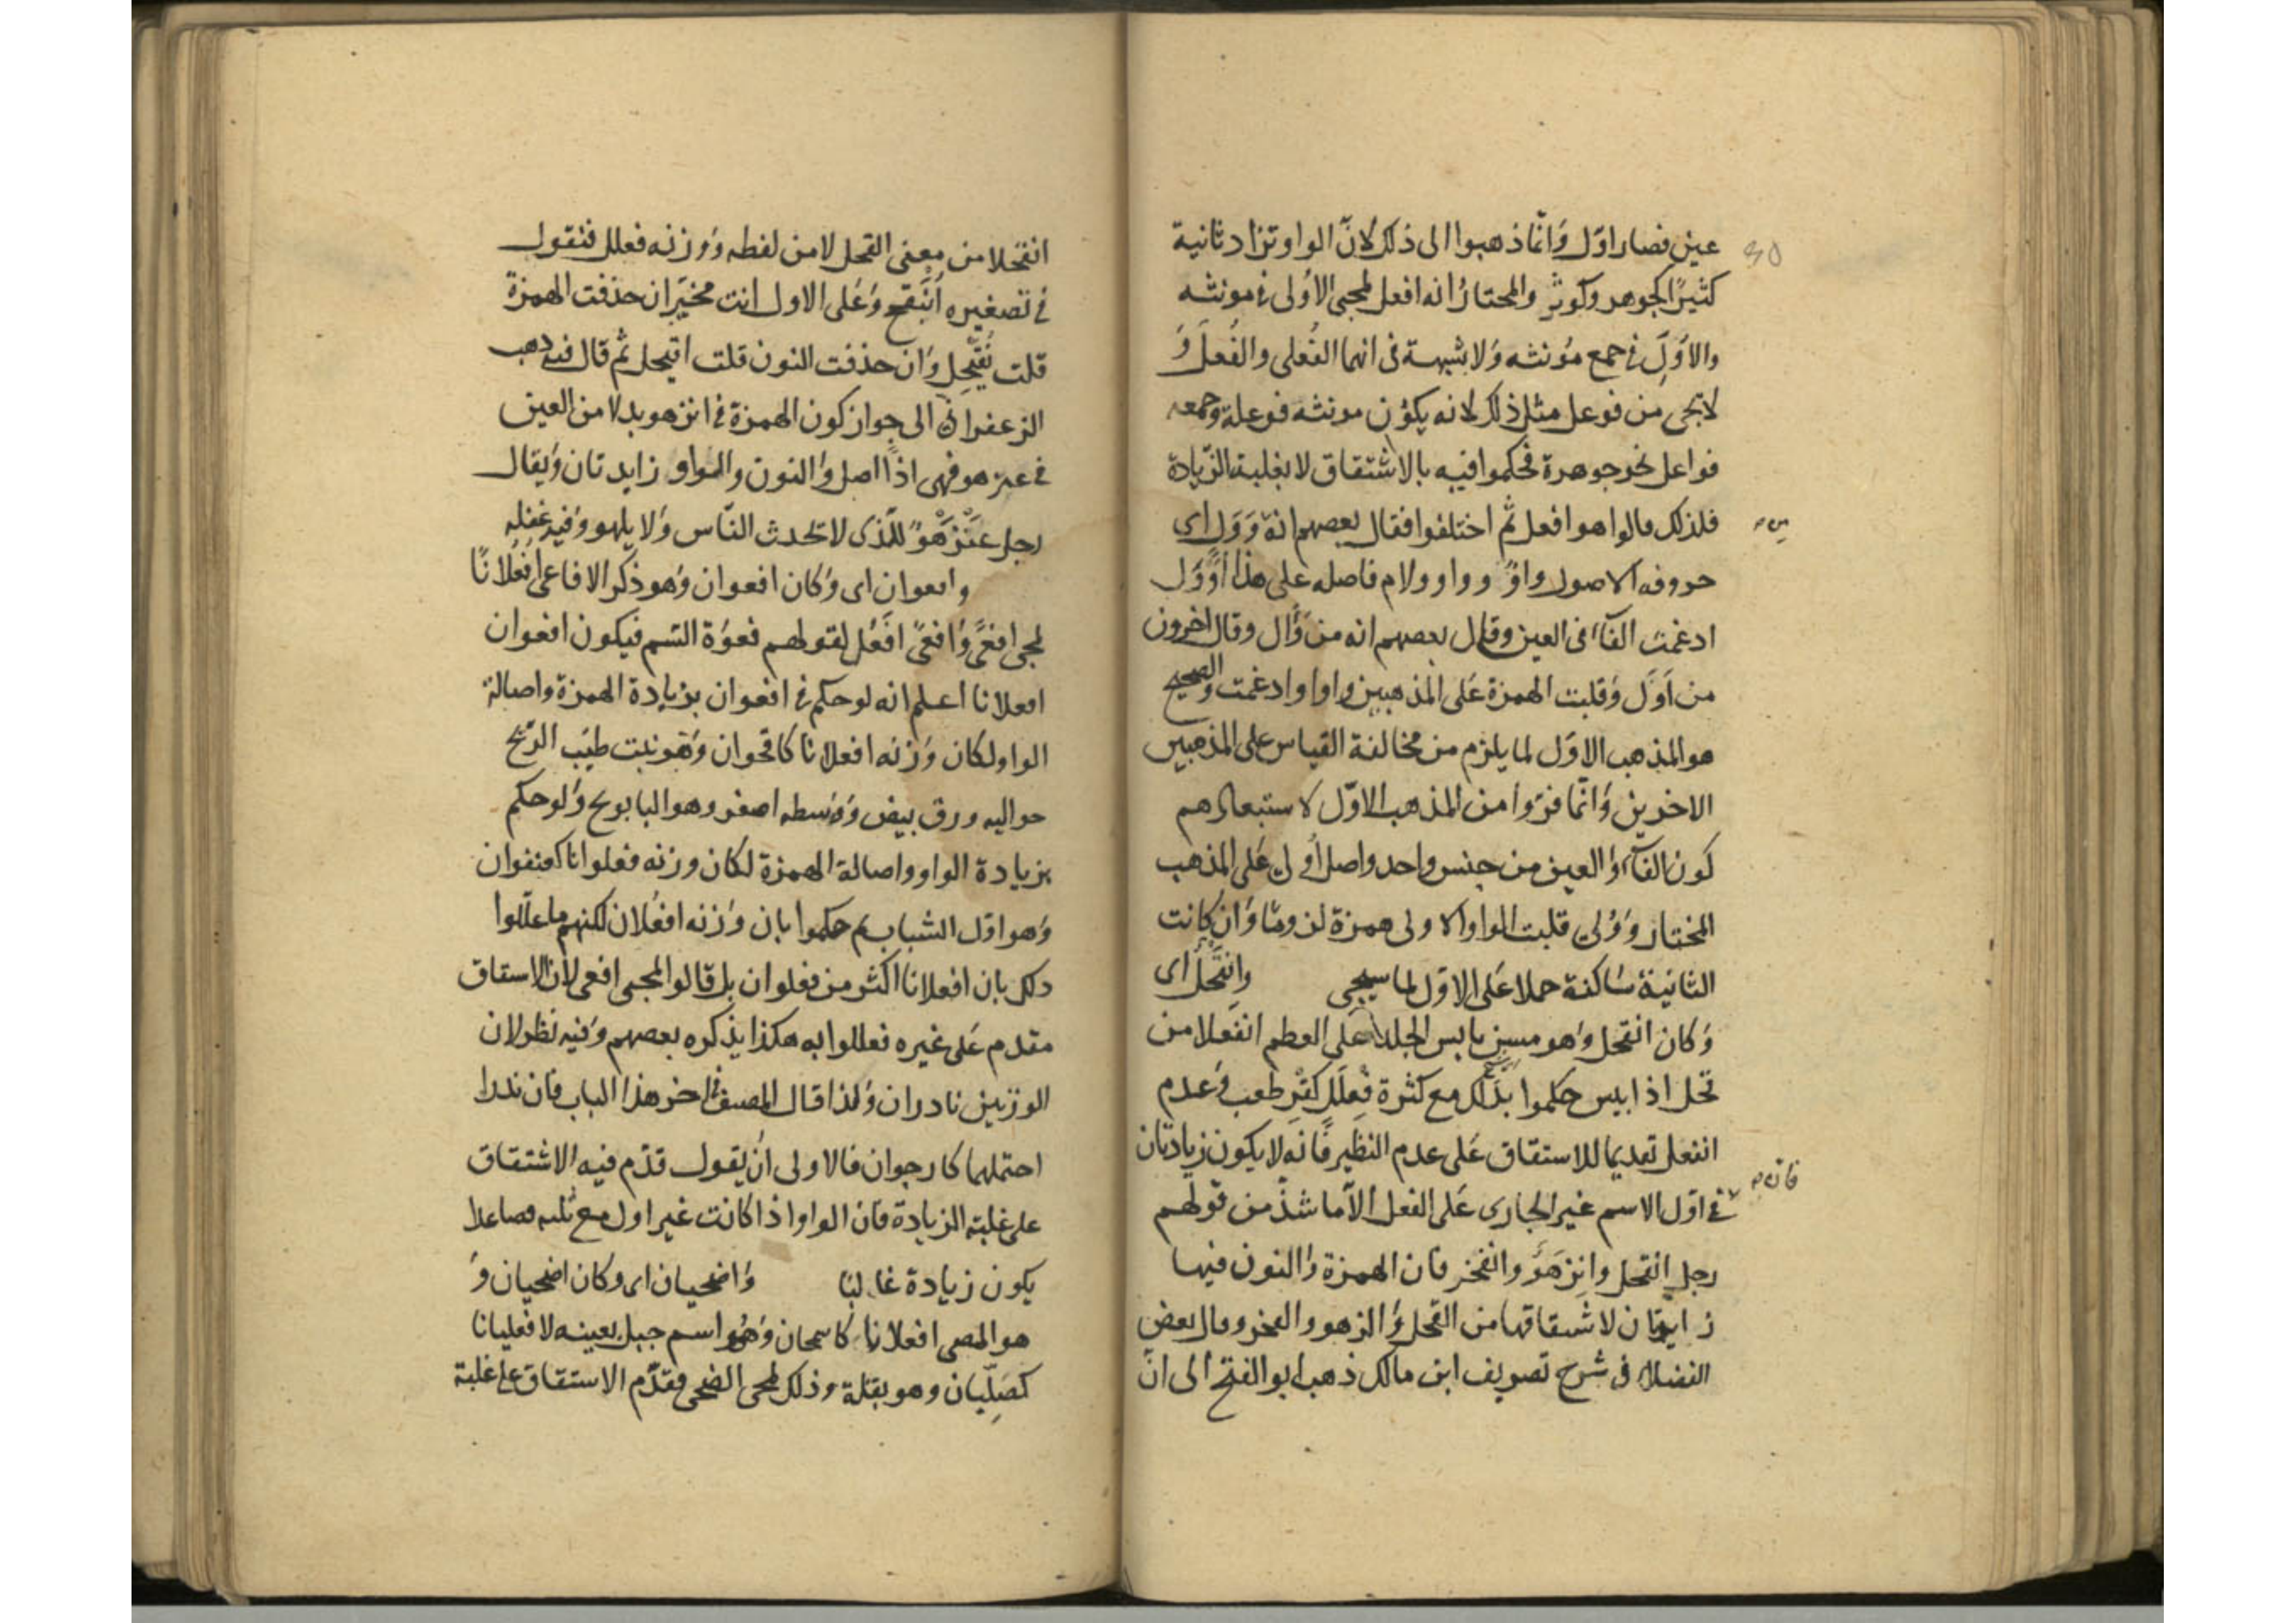 عين فصار اوّل وَانّما ذهبوا الى ذلك لانّ الواو تزاد ثانية
كثيرًا كجوهر وكوثر والمختارُ انه افعل لمجئ الاُولى فى مونثه
والاُوَلِ فى جمع مؤنثه وَلا شبهة فى انهما الفُعلى والفُعَل وَ
لا يجى من فوعل مثل ذلك لانه يكون مونثه فوعلة وجمعه
فواعل نحو جوهرة فحكموا فيه بالاشتقاق لا بغلبة الزّيادة
فلذلك قالوا هو افعل ثم اختلفوا فقال بعضهم انه وَوَل اى
حروفه الاصول واوٌ وواو ولام فاصله على هذا أَوْوَل
ادغمت الفآء فى العين وقال بعضهم انه من وَأل وقال اخرون
من أَوَل وَقلبت الهمزة عَلى المذهبين واوا وادغمت والصحيح
هو المذهب الاوّل لما يلزم من مخالفة القياس على المذهبين
الاخرين وَانّما فرّوا من المذهب الاوّل لاستبعادهم
كون الفآء وَالعين من جنس واحد واصل اُولى عَلى المذهب
المختار وَوْلى قلبت الواو الاولى همزة لزومًا وَان كانت
الثانية سَاكنة حملا عَلى الاوّل لما سيجى وانقحل اى
وَكان انقحل وَهو مسن يابس الجلد عَلى العظم انفعلا من
قحل اذا يبس حكموا بذلك مع كثرة فِعْلَلّ كقِرطعب وَعدم
انفعل تقديما للاشتقاق عَلى عدم النظير فَانه لا يكون زيادتان
فانه
فى اوّل الاسم غير الجارى عَلى الفعل الّا ما شذّ من قولهم
رجل انقحل وانزهو وانفخر فان الهمزة وَالنون فيها
زايدتان لاشتقاقها من القحل وَالزهو والفخر وقال بعض
الفضلاء فى شرح تصريف ابن مالك ذهب ابو الفتح الى انّ
انقحلا من معنى القحل لا من لفظه وَوزنه فعلل فنقول
فى تصغيره اُنَيقح وَعَلى الاول انت مخيّر ان حذفت الهمزة
قلت نُقَيْحِل وَان حذفت النون قلت اقيحل ثم قال فيه ذهب
الزعفرانى الى جواز كون الهمزة فى انزهو بدلا من العين
فى عنزهو فهى اذًا اصل وَالنون والواو زايدتان وَيقال
رجل عِنْزَهْوٌ للّذى لا يحدث النّاس وَلا يلهو وَفيه غفلة
وافعوان اى وَكان افعوان وَهو ذكر الافاعى افعُلانًا
لمجى افعًى وَافعًى افعَل لقولهم فعوَة السّم فيكون افعوان
افعلانا اعلم انه لو حكم فى افعوان بزيادة الهمزة واصالة
الواو لكان وَزنه افعلانا كاقحوان وَهو نبت طيّب الرّيح
حواليه ورق بيض وَوَسطه اصفر وهو البابونج وَلو حكم
بزيادة الواو واصالة الهمزة لكان وزنه فعلوانا كعنفوان
وَهو اوّل الشباب ثم حكموا بان وَزنه افعُلان لكنهم ما علّلوا
ذلك بان افعلانا اكثر من فعلوان بل قالوا لمجى افعى لان الاشتقاق
مقدم عَلى غيره فعللوا به هكذا يذكره بعضهم وَفيه نظر لان
الوزنين نادران وَلذا قال المصنف فى اخر هذا الباب فان ندرا
احتملهما كارجوان فالاولى ان يقول قدّم فيه الاشتقاق
على غلبة الزيادة فان الواو اذا كانت غير اول مع ثلثه فصاعدا
يكون زيادة غالبًا وَاضحيان اى وكان اضحيان وَ
هو المضى افعلانا كاسحمان وَهُو اسم جبل بعينه لا فعليانا
كصِلّيان وهو بقلة وذلك لمجى الضحى فقدّم الاشتقاق على غلبة